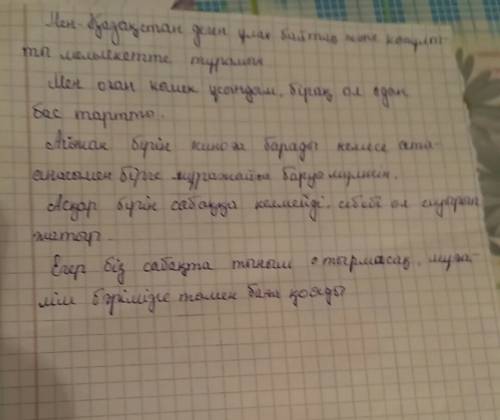 Мен - Қазақстан деген ұлан байтақ және қауіпті
ты мемлекетте тұрамын
Мен оған көмек ұсындам, бірақ ол одан
бас тартты.
Айжан бүгін киноға барады немесе ата-
анасымен бірге мұражайға баруы мүмкін.
Асқар бүгін сабаққа келмейді, себебі ол ауырып
жатыр.
Егер біз сабақта тыныш отырмасақ, мұға-
лім бәрімізге төмен баға қояды